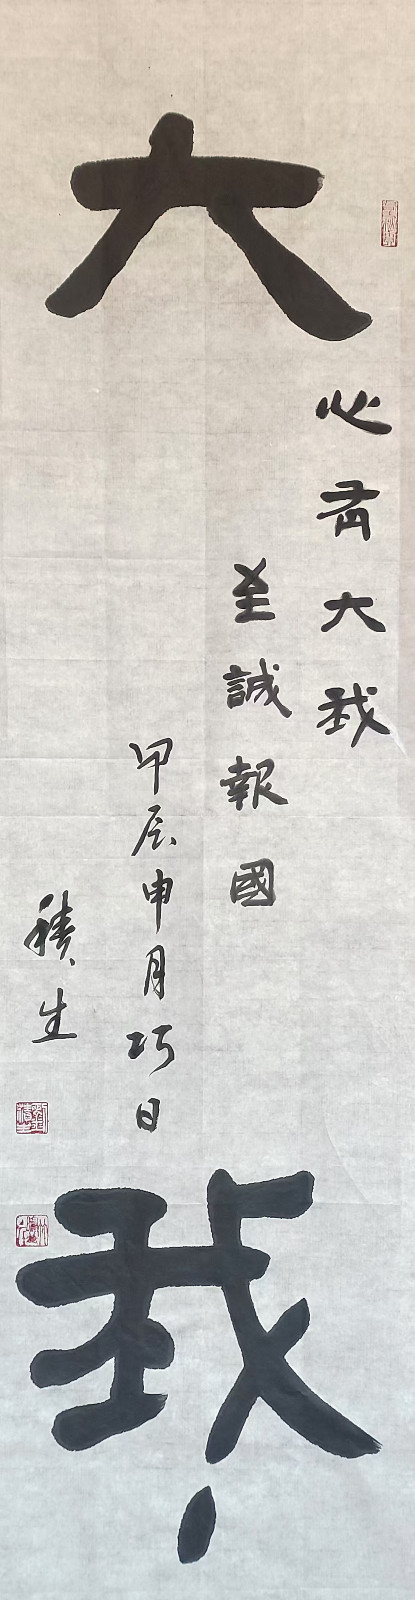 大我
心有大我
至誠報國
甲辰申月巧日
積生